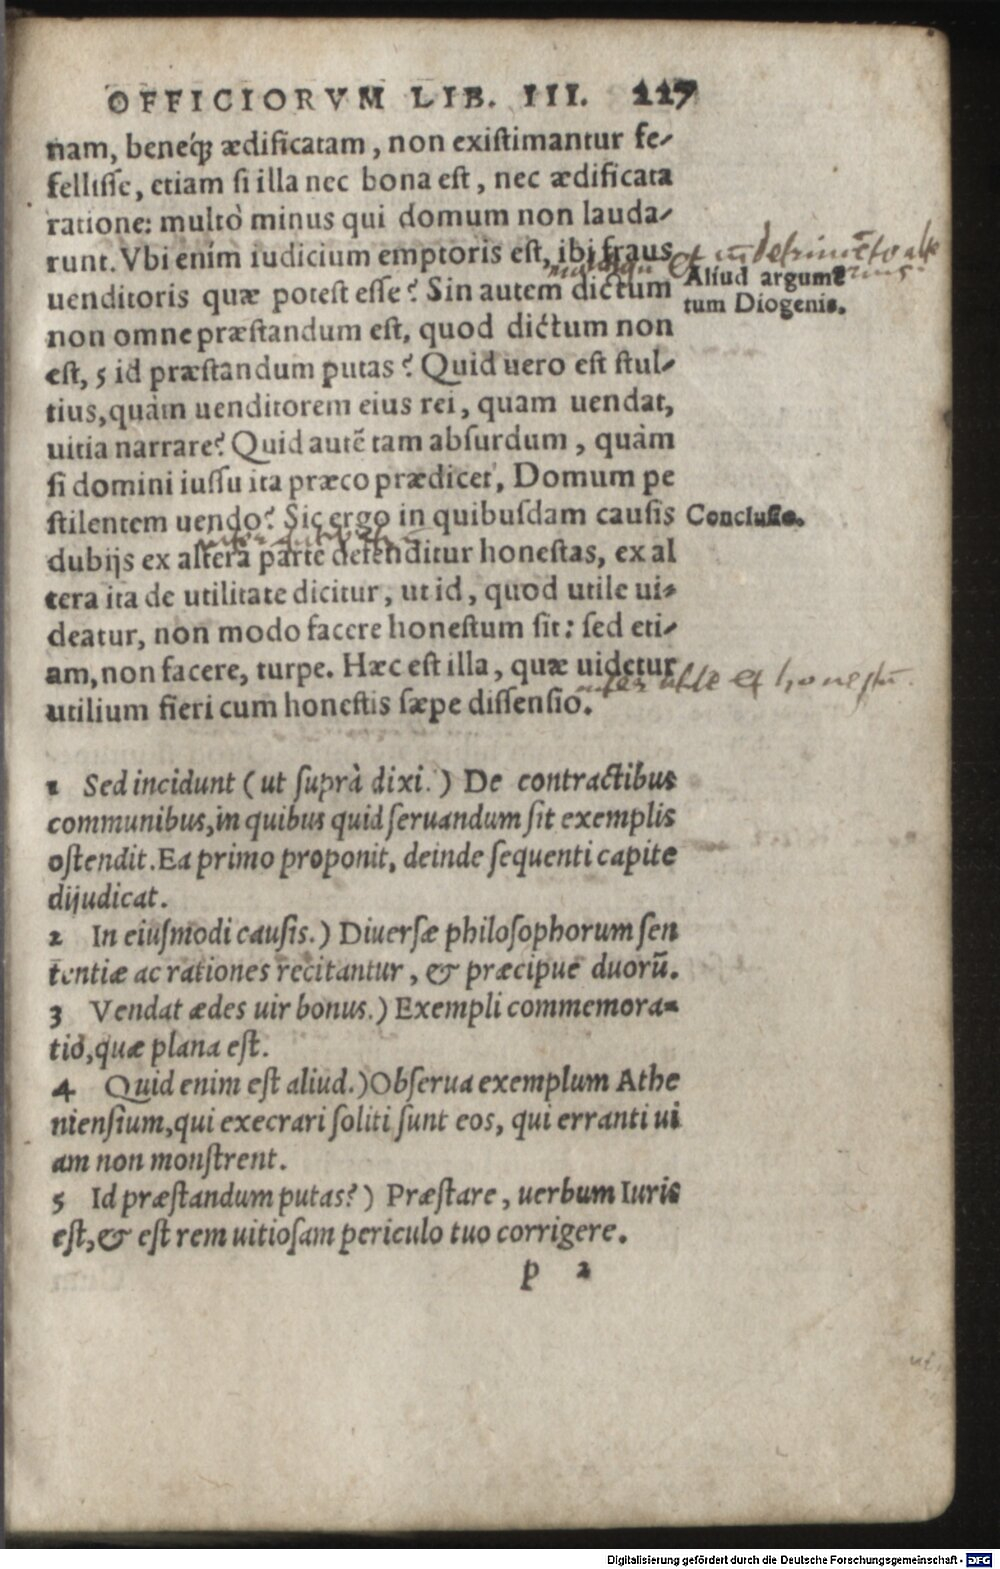 OFFICIORVM LIB. III. 117
nam, beneq́ꝫ ædificatam, non existimantur fe-
fellisse, etiam si illa nec bona est, nec ædificata
ratione: multò minus qui domum non lauda-
runt. Vbi enim iudicium emptoris est, ibi fraus
uenditoris quæ potest esse? Sin autem dictum
Aliud argumē
tum Diogenis.
non omne præstandum est, quod dictum non
est, 5 id præstandum putas? Quid uero est stul-
tius, quàm uenditorem eius rei, quam uendat,
uitia narrare? Quid autē tam absurdum, quàm
si domini iussu ita præco prædicet, Domum pe
stilentem uendo? Sic ergo in quibusdam causis
Conclusio.
dubijs ex altera parte defenditur honestas, ex al
tera ita de utilitate dicitur, ut id, quod utile ui-
deatur, non modo facere honestum sit: sed eti-
am, non facere, turpe. Hæc est illa, quæ uidetur
inter utile et honestū.
utilium fieri cum honestis sæpe dissensio.
1 Sed incidunt (ut suprà dixi.) De contractibus
communibus, in quibus quid seruandum sit exemplis
ostendit. Ea primo proponit, deinde sequenti capite
dijudicat.
2 In eiusmodi causis.) Diuersæ philosophorum sen
tentiæ ac rationes recitantur, & præcipue duorū.
3 Vendat ædes uir bonus.) Exempli commemora-
tio, quæ plana est.
4 Quid enim est aliud.) Obserua exemplum Athe
niensium, qui execrari soliti sunt eos, qui erranti ui
am non monstrent.
5 Id præstandum putas?) Præstare, uerbum Iuris
est, & est rem uitiosam periculo tuo corrigere.
p 2
Digitalisierung gefördert durch die Deutsche Forschungsgemeinschaft - DFG